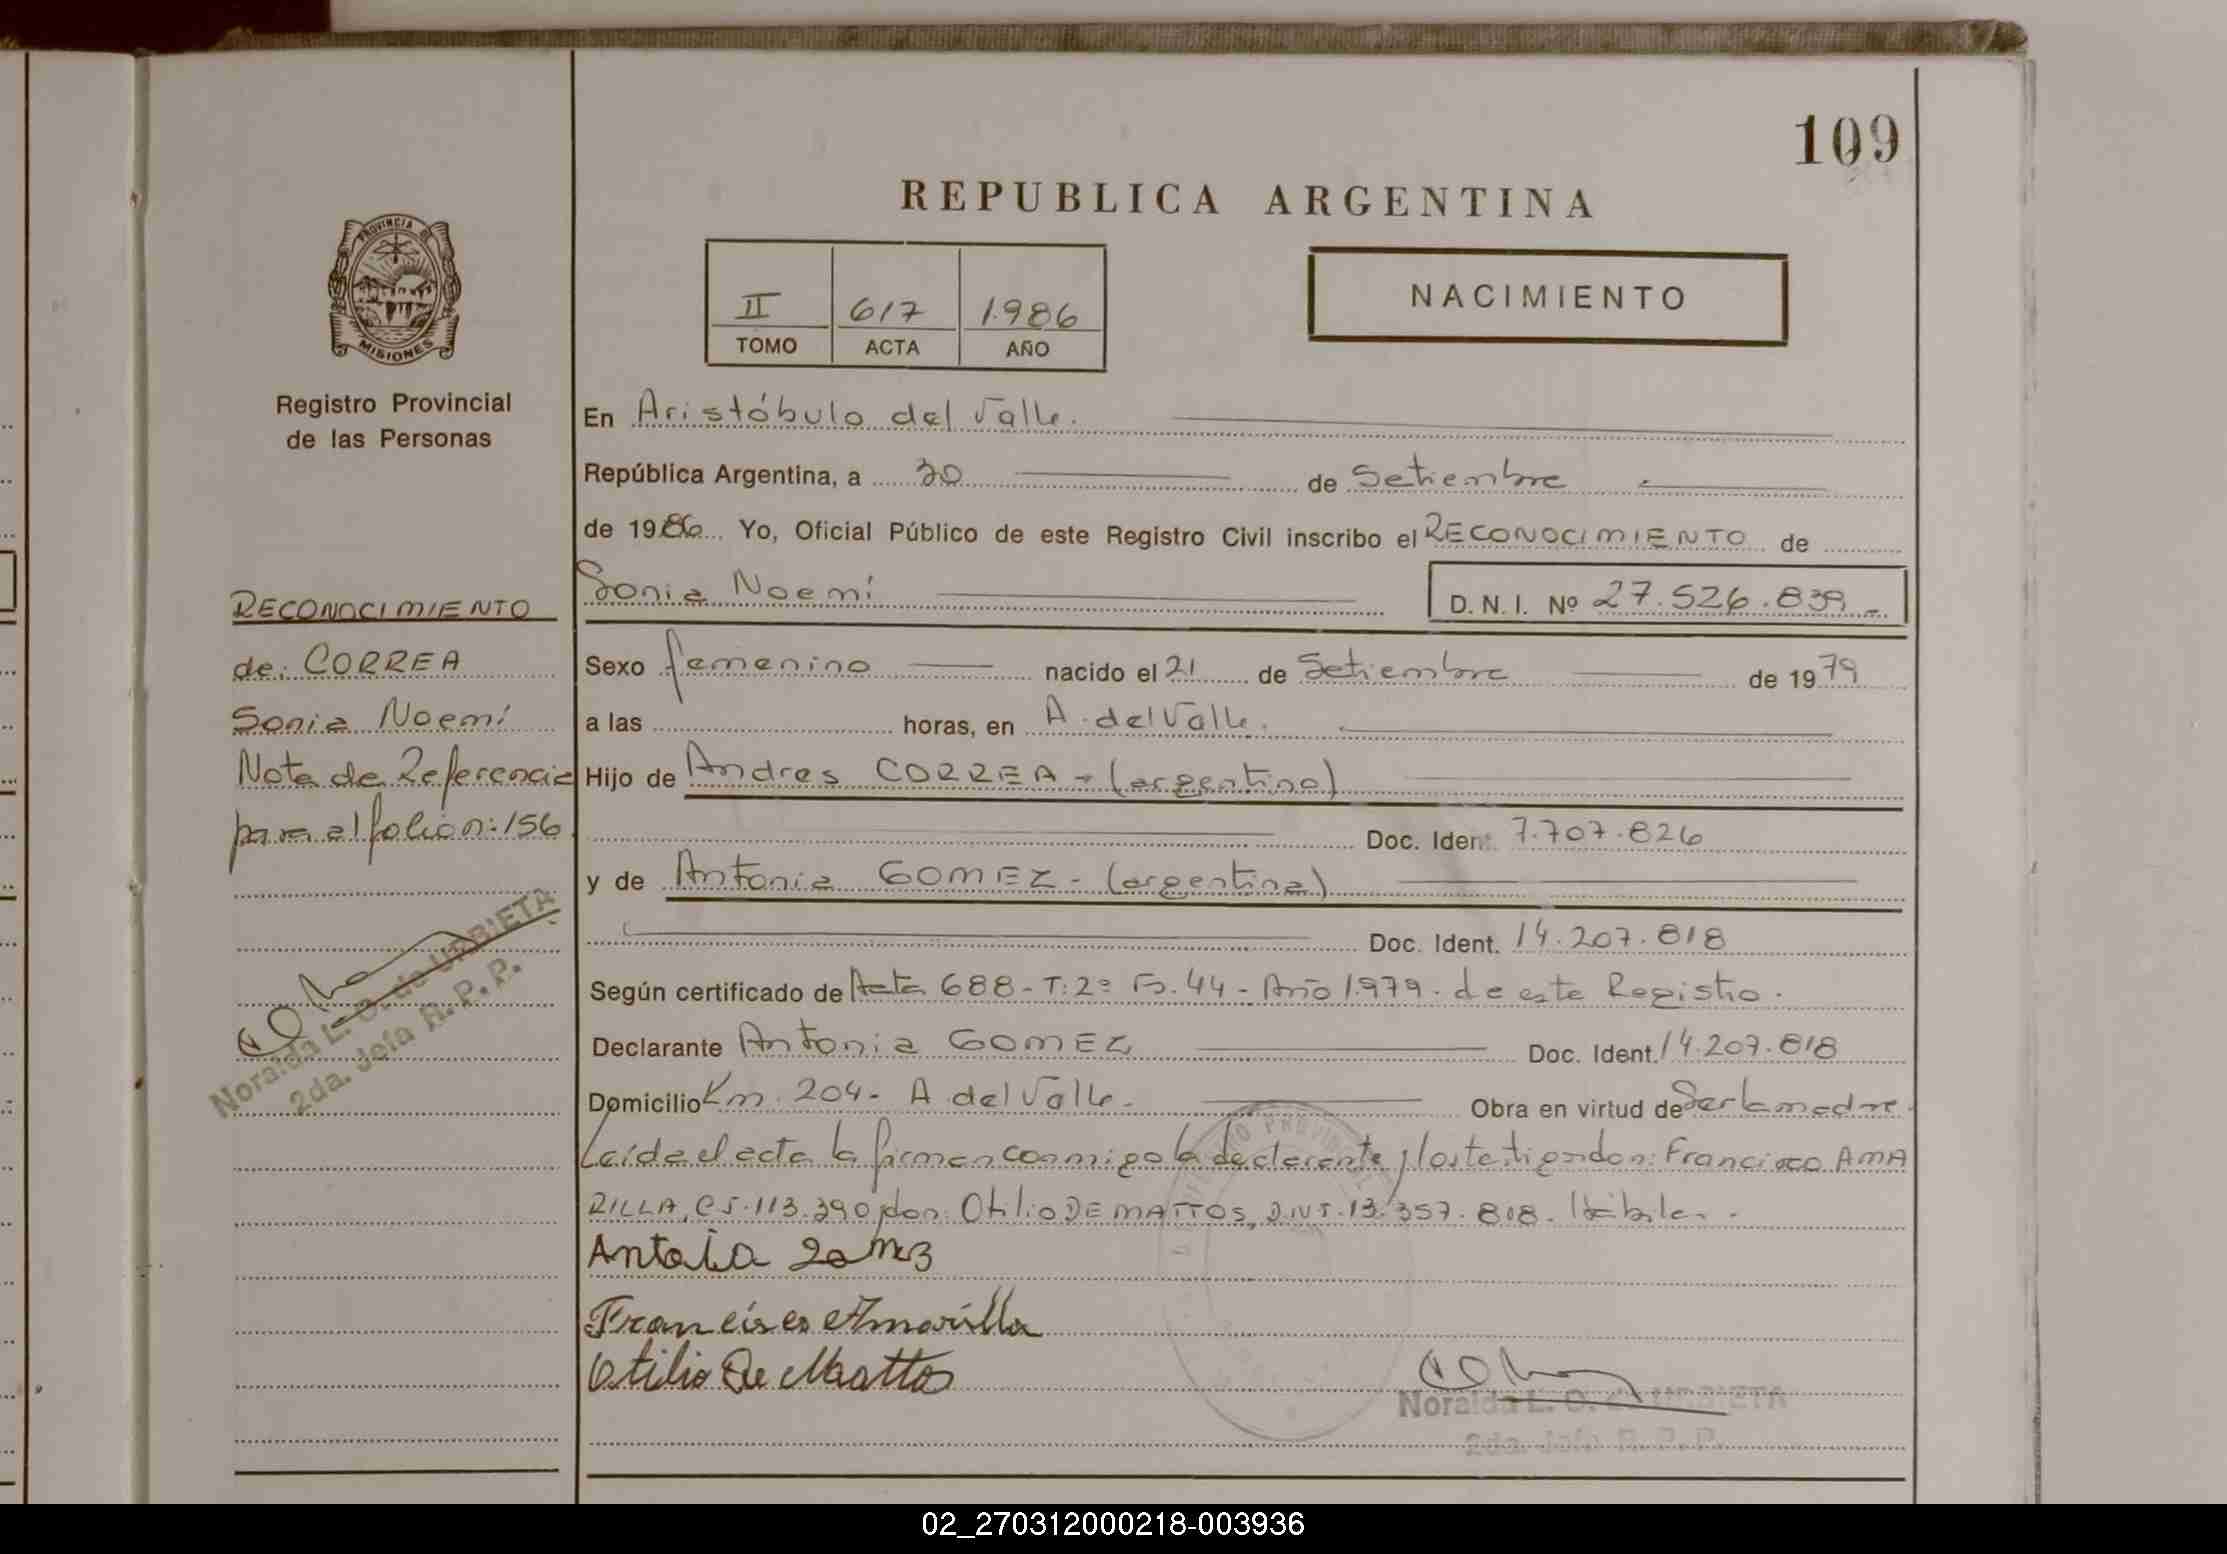 109
REPUBLICA ARGENTINA
PROVINCIA DE
MISIONES
II 617 1.986
TOMO ACTA AÑO
NACIMIENTO
Registro Provincial
de las Personas
En Aristóbulo del Valle.
República Argentina, a 30 de Setiembre
de 1986 Yo, Oficial Público de este Registro Civil inscribo el RECONOCIMIENTO de
Sonia Noemí D.N.I. Nº 27.526.839
RECONOCIMIENTO
de: CORREA
Sonia Noemí
Nota de Referencia
para el folio n: 156
Noralda L. O. de URBIETA
2da. Jefa R. P. P.
Sexo femenino nacido el 21 de Setiembre de 1979
a las horas, en A. del Valle.
Hijo de Andres CORREA - (argentino)
Doc. Ident. 7.707.826
y de Antonia GOMEZ - (argentina)
Doc. Ident. 14.207.818
Según certificado de Acta 688 - T: 2º Fº. 44 - Año 1.979. de este Registro.
Declarante Antonia GOMEZ Doc. Ident. 14.207.818
Domicilio Km. 204 - A. del Valle. Obra en virtud de Ser la madre.
Leída el acta la firman conmigo la declarante y los testigos don: Francisco AMA
RILLA, C.I. 113.390 y don: Otilio DE MATTOS, D.N.I. 13.357.818. Hábiles.
Antoia Gomez
Francisco Amarilla
Otilio De Mattos
Noralda L. O. de URBIETA
2da. Jefa R. P. P.
02_270312000218-003936